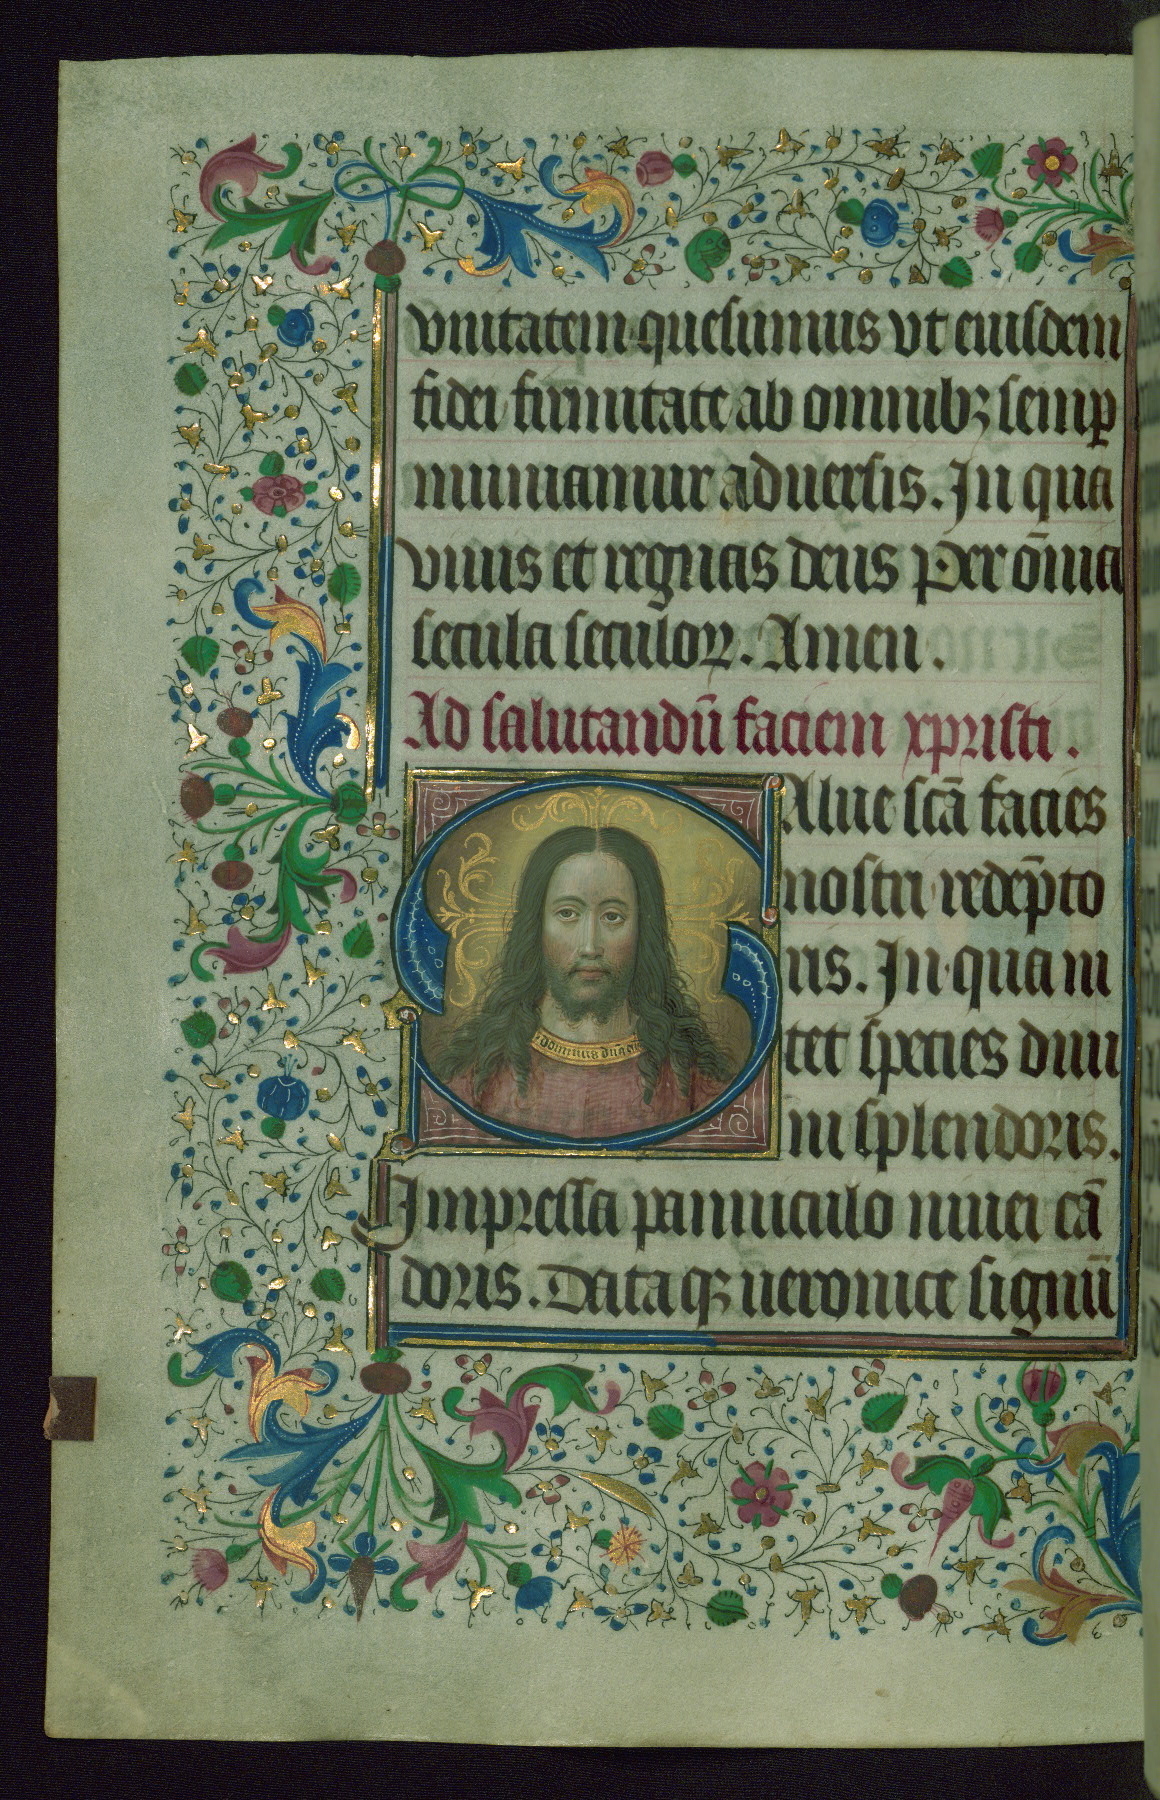 vnitatem quesumus vt eiusdem
fidei firmitate ab omnibꝫ semꝑ
muniamur aduersis. In qua
viuis et regnas deus Per om̄ia
secula seculoꝝ. Amen.
Ad salutandū faciem xpristi.
SAlue scā facies
nostri redēpto
ris. In qua ni
tet species diui
ni splendoris.
Impressa panniculo niuei cā
doris. Dataqꝫ ueronice signū
dominus